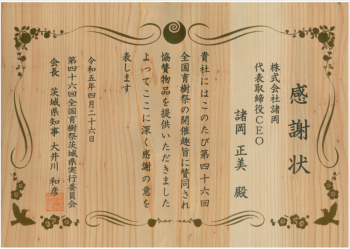 感謝状
株式会社諸岡
代表取締役CEO
諸岡 正美 殿
貴社にはこのたび第四十六回
全国育樹祭の開催趣旨に賛同され
協賛物品を提供いただきました
よってここに深く感謝の意を
表します
令和五年四月二十六日
第四十六回全国育樹祭茨城県実行委員会
会長 茨城県知事 大井川 和彦